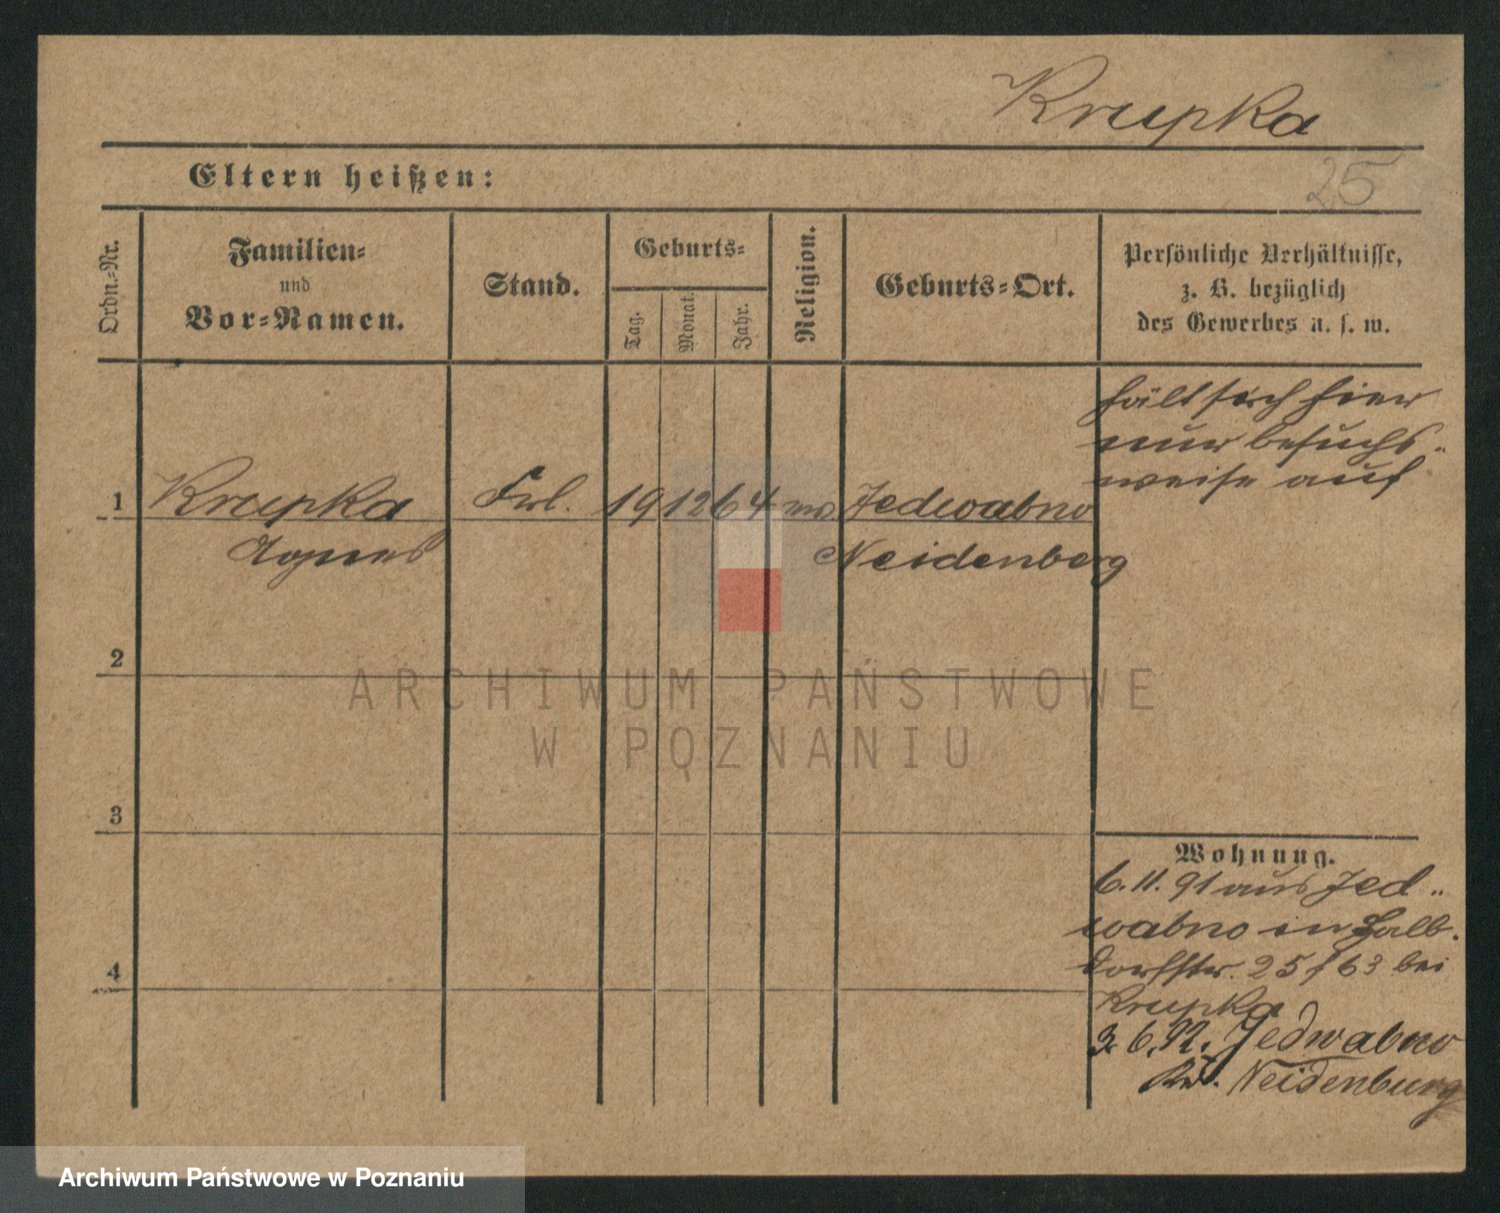 Krupka
25
Eltern heißen:
Ordn.-Nr.
Familien-
und
Vor-Namen.
Stand.
Geburts-
Tag.
Monat.
Jahr.
Religion.
Geburts-Ort.
Persönliche Verhältnisse,
z. B. bezüglich
des Gewerbes u. s. w.
hält sich hier
nur besuchs-
weise auf
1 Krupka Frl. 19 12 64 Jedwabno
Agnes Neidenberg
2
3
4
Wohnung.
6.11.91 aus Jed-
wabno in Halb-
dorfstr. 25/63 bei
Krupka
3.6.92. Jedwabno
Kr. Neidenburg
ARCHIWUM PAŃSTWOWE
W POZNANIU
Archiwum Państwowe w Poznaniu